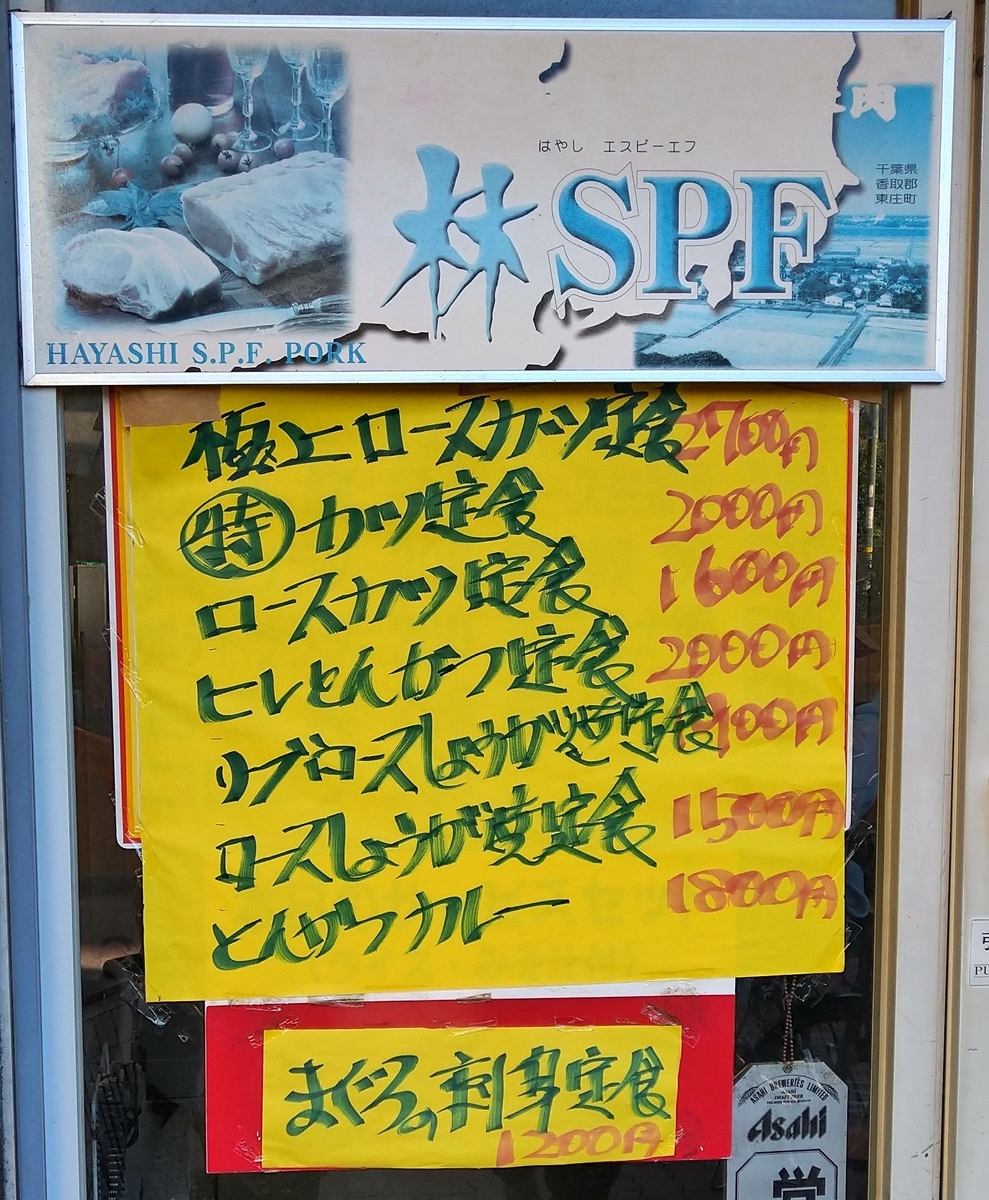 肉
はやし エスピーエフ
林SPF
千葉県
香取郡
東庄町
HAYASHI S.P.F. PORK
極上ロースカツ定食 2700円
特カツ定食 2000円
ロースカツ定食 1600円
ヒレとんかつ定食 2000円
リブロースしょうが焼定食
ロースしょうが焼定食 1500円
とんかつカレー 1800円
まぐろの刺身定食
1200円
ASAHI BREWERIES LIMITED
Asahi